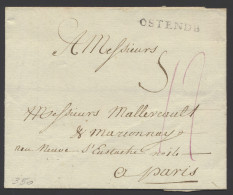 OSTENDE
A Messieurs
Messieurs Mallerault
& Marzonnay
rue Neuve St Eustache
a Paris
350